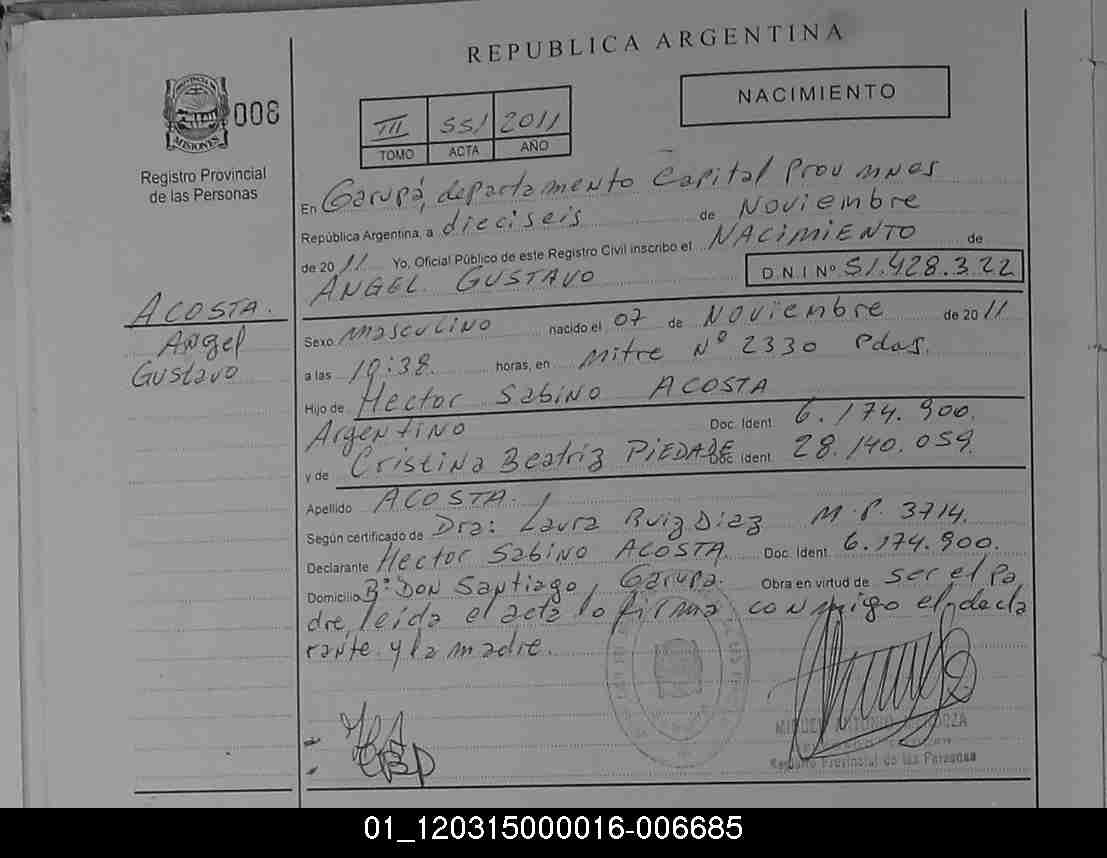 REPUBLICA ARGENTINA
PROVINCIA DE
MISIONES
008
Registro Provincial
de las Personas
III 551 2011
TOMO ACTA AÑO
NACIMIENTO
En Garupá, departamento Capital Prov mnes
República Argentina, a dieciseis de Noviembre
de 2011 Yo, Oficial Público de este Registro Civil inscribo el NACIMIENTO de
ANGEL GUSTAVO D.N.I Nº 51.428.322
ACOSTA.
Angel
Gustavo
Sexo masculino nacido el 07 de Noviembre de 2011
a las horas, en mitre Nº 2330 Pdas.
Hijo de Hector Sabino ACOSTA
Argentino Doc. Ident. 6.174.900.
y de Cristina Beatriz PIEDADE Doc. Ident. 28.140.059.
Apellido ACOSTA.
Según certificado de Dra: Laura Ruiz Diaz M.P. 3714.
Declarante Hector Sabino ACOSTA Doc. Ident. 6.174.900.
Domicilio Bº Don Santiago, Garupa. Obra en virtud de ser el pa
dre, leída el acta lo firma conmigo el decla
rante y la madre.
Registro Provincial de las Personas
01_120315000016-006685